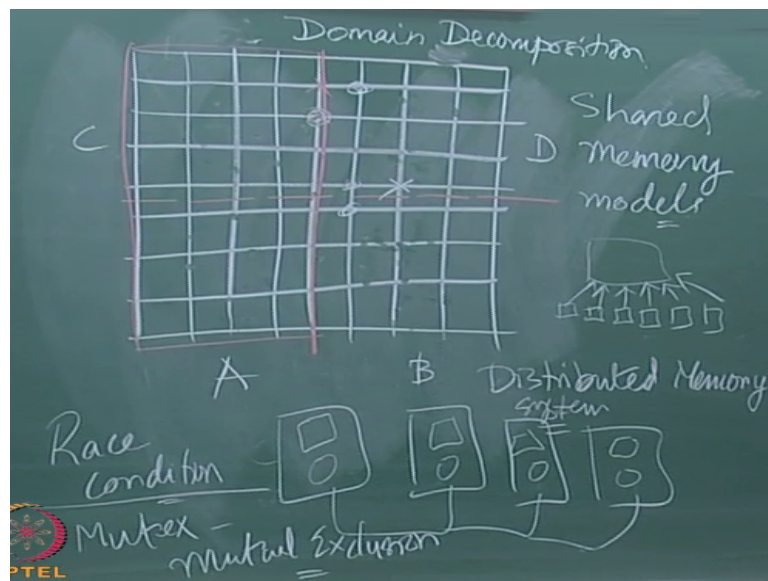 - Domain Decomposition
Shared
memory
models
C
D
A
B
Distributed Memory
system
Race
condition
Mutex -
Mutual Exclusion
PTEL